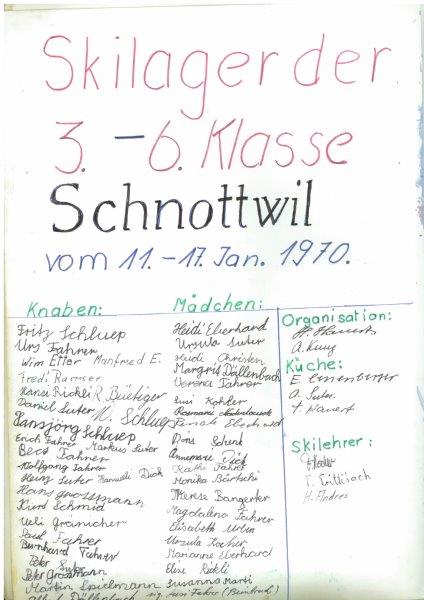 Skilager der
3. – 6. Klasse
Schnottwil
vom 11. – 17. Jan. 1970.
Knaben:
Fritz Schluep
Urs Fahrer
Wim Etter Manfred E.
Fredi Ramser
Hansi Rickli R. Bütiger
Daniel Suter H. Schluep
Hansjörg Schluep
Erich Fahrer Markus Suter
Beat Fahrer
Wolfgang Fahrer
Heinz Suter Samueli Dick
Hans Grossmann
Kurt Schmid
Ueli Gränicher
Paul Fahrer
Bernhard Fahrer
Peter Suter
Peter Grossmann
Martin Spielmann
Mädchen:
Heidi Eberhard
Ursula Suter
Heidi Christen
Margrit Dällenbach
Verena Fahrer
Susi Kohler
Renate
Doris Schenk
Annemarie Dick
Käthi Fahrer
Monika Bärtschi
Therese Bangerter
Magdalena Fahrer
Elisabeth
Ursula Kocher
Marianne Eberhard
Elise Rickli
Susanna Marti
Susi Fahrer (Beinbruch)
Organisation:
A. Kunz
Küche:
E.
A. Suter.
Skilehrer:
H. Andres